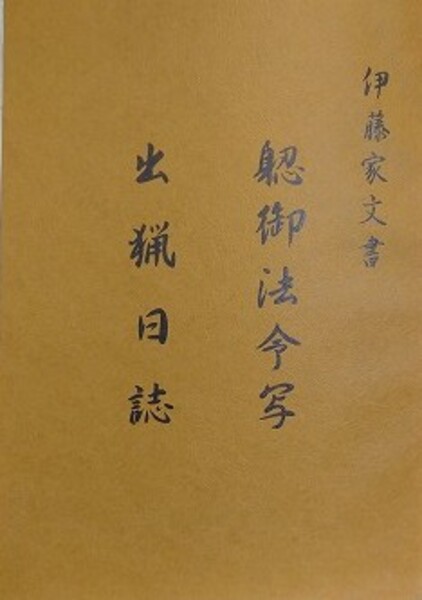 伊藤家文書
躵御法令写
出猟日誌